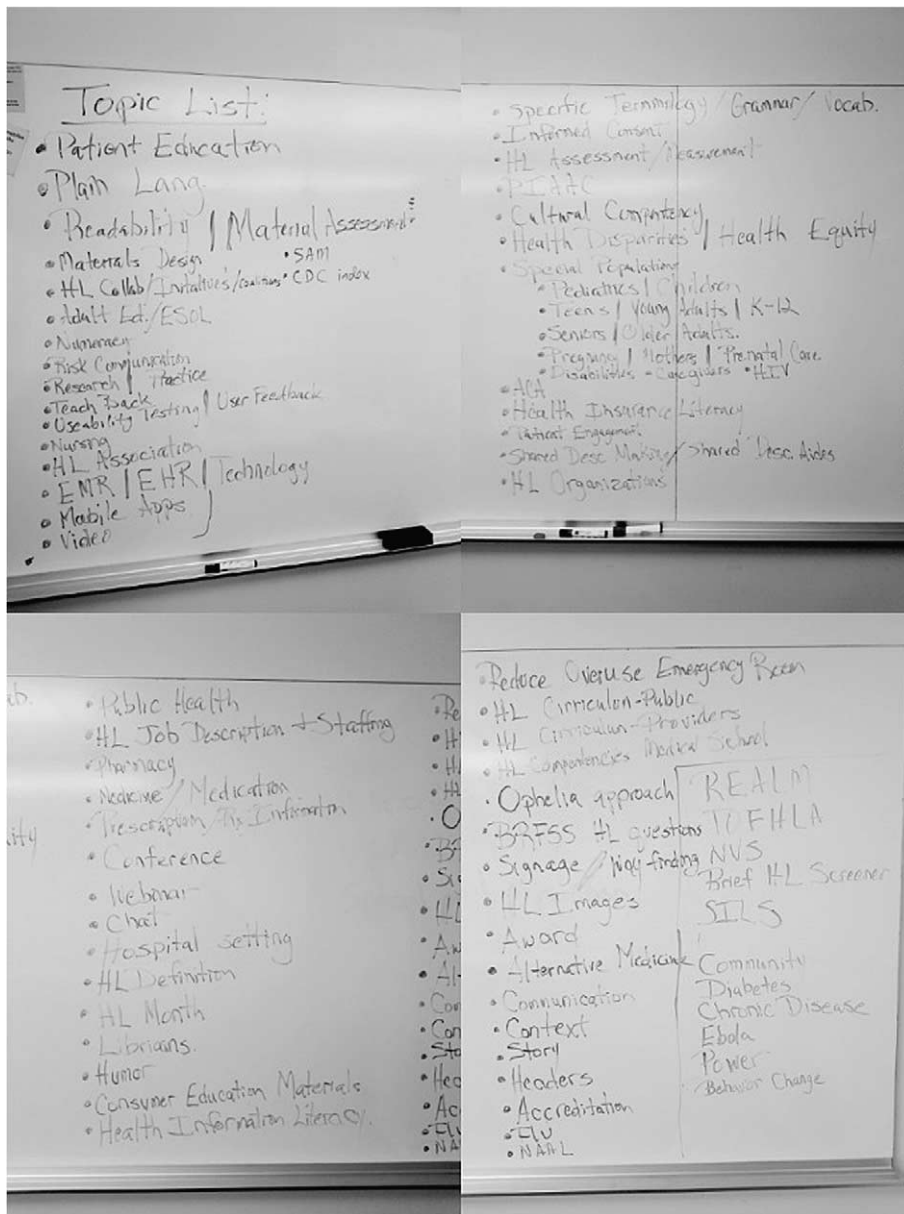 Topic List:
• Patient Education
• Plain Lang.
• Readability / Material Assessment:
• Materials Design • SAM
• HL Collab/Initatives/coalitions • CDC index
• Adult Ed./ESOL
• Numeracy
• Risk Communication
• Research / Practice
• Teach Back
• Useability Testing / User Feedback
• Nursing
• HL Association
• EMR / EHR / Technology
• Mobile Apps
• Video
• Specific Terminology / Grammar / Vocab.
• Informed Consent
• HL Assessment/Measurement
• PIAAC
• Cultural Competency
• Health Disparities / Health Equity
• Special Populations
• Pediatrics / Children
• Teens / Young Adults / K-12
• Seniors / Older Adults.
• Pregnancy / Mothers / Prenatal Care
• Disabilities • Caregivers • HIV
• ACA
• Health Insurance Literacy
• Patient Engagement
• Shared Desc Making / Shared Desc. Aides
• HL Organizations
ab.
ity
• Public Health
• HL Job Description + Staffing
• Pharmacy
• Medicine / Medication
• Prescription / Rx Information
• Conference
• Webinar
• Chat
• Hospital setting
• HL Definition
• HL Month
• Librians.
• Humor
• Consumer Education Materials
• Health Information Literacy.
• Re
• H
• HL
• HL
• O
• BR
• Si
• HL
• Aw
• Alt
• Com
• Con
• Sto
• Hea
• Ac
• NA
• Reduce Overuse Emergency Room
• HL Cirriculon-Public
• HL Cirriculon-Providers
• HL Competencies Medical School
• Ophelia approach
• BRFSS HL questions
• Signage / Way finding
• HL Images
• Award
• Alternative Medicine
• Communication
• Context
• Story
• Headers
• Accreditation
• NAAL
REALM
TOFHLA
NVS
Brief HL Screener
SILS
Community
Diabetes
Chronic Disease
Ebola
Power
Behavior Change